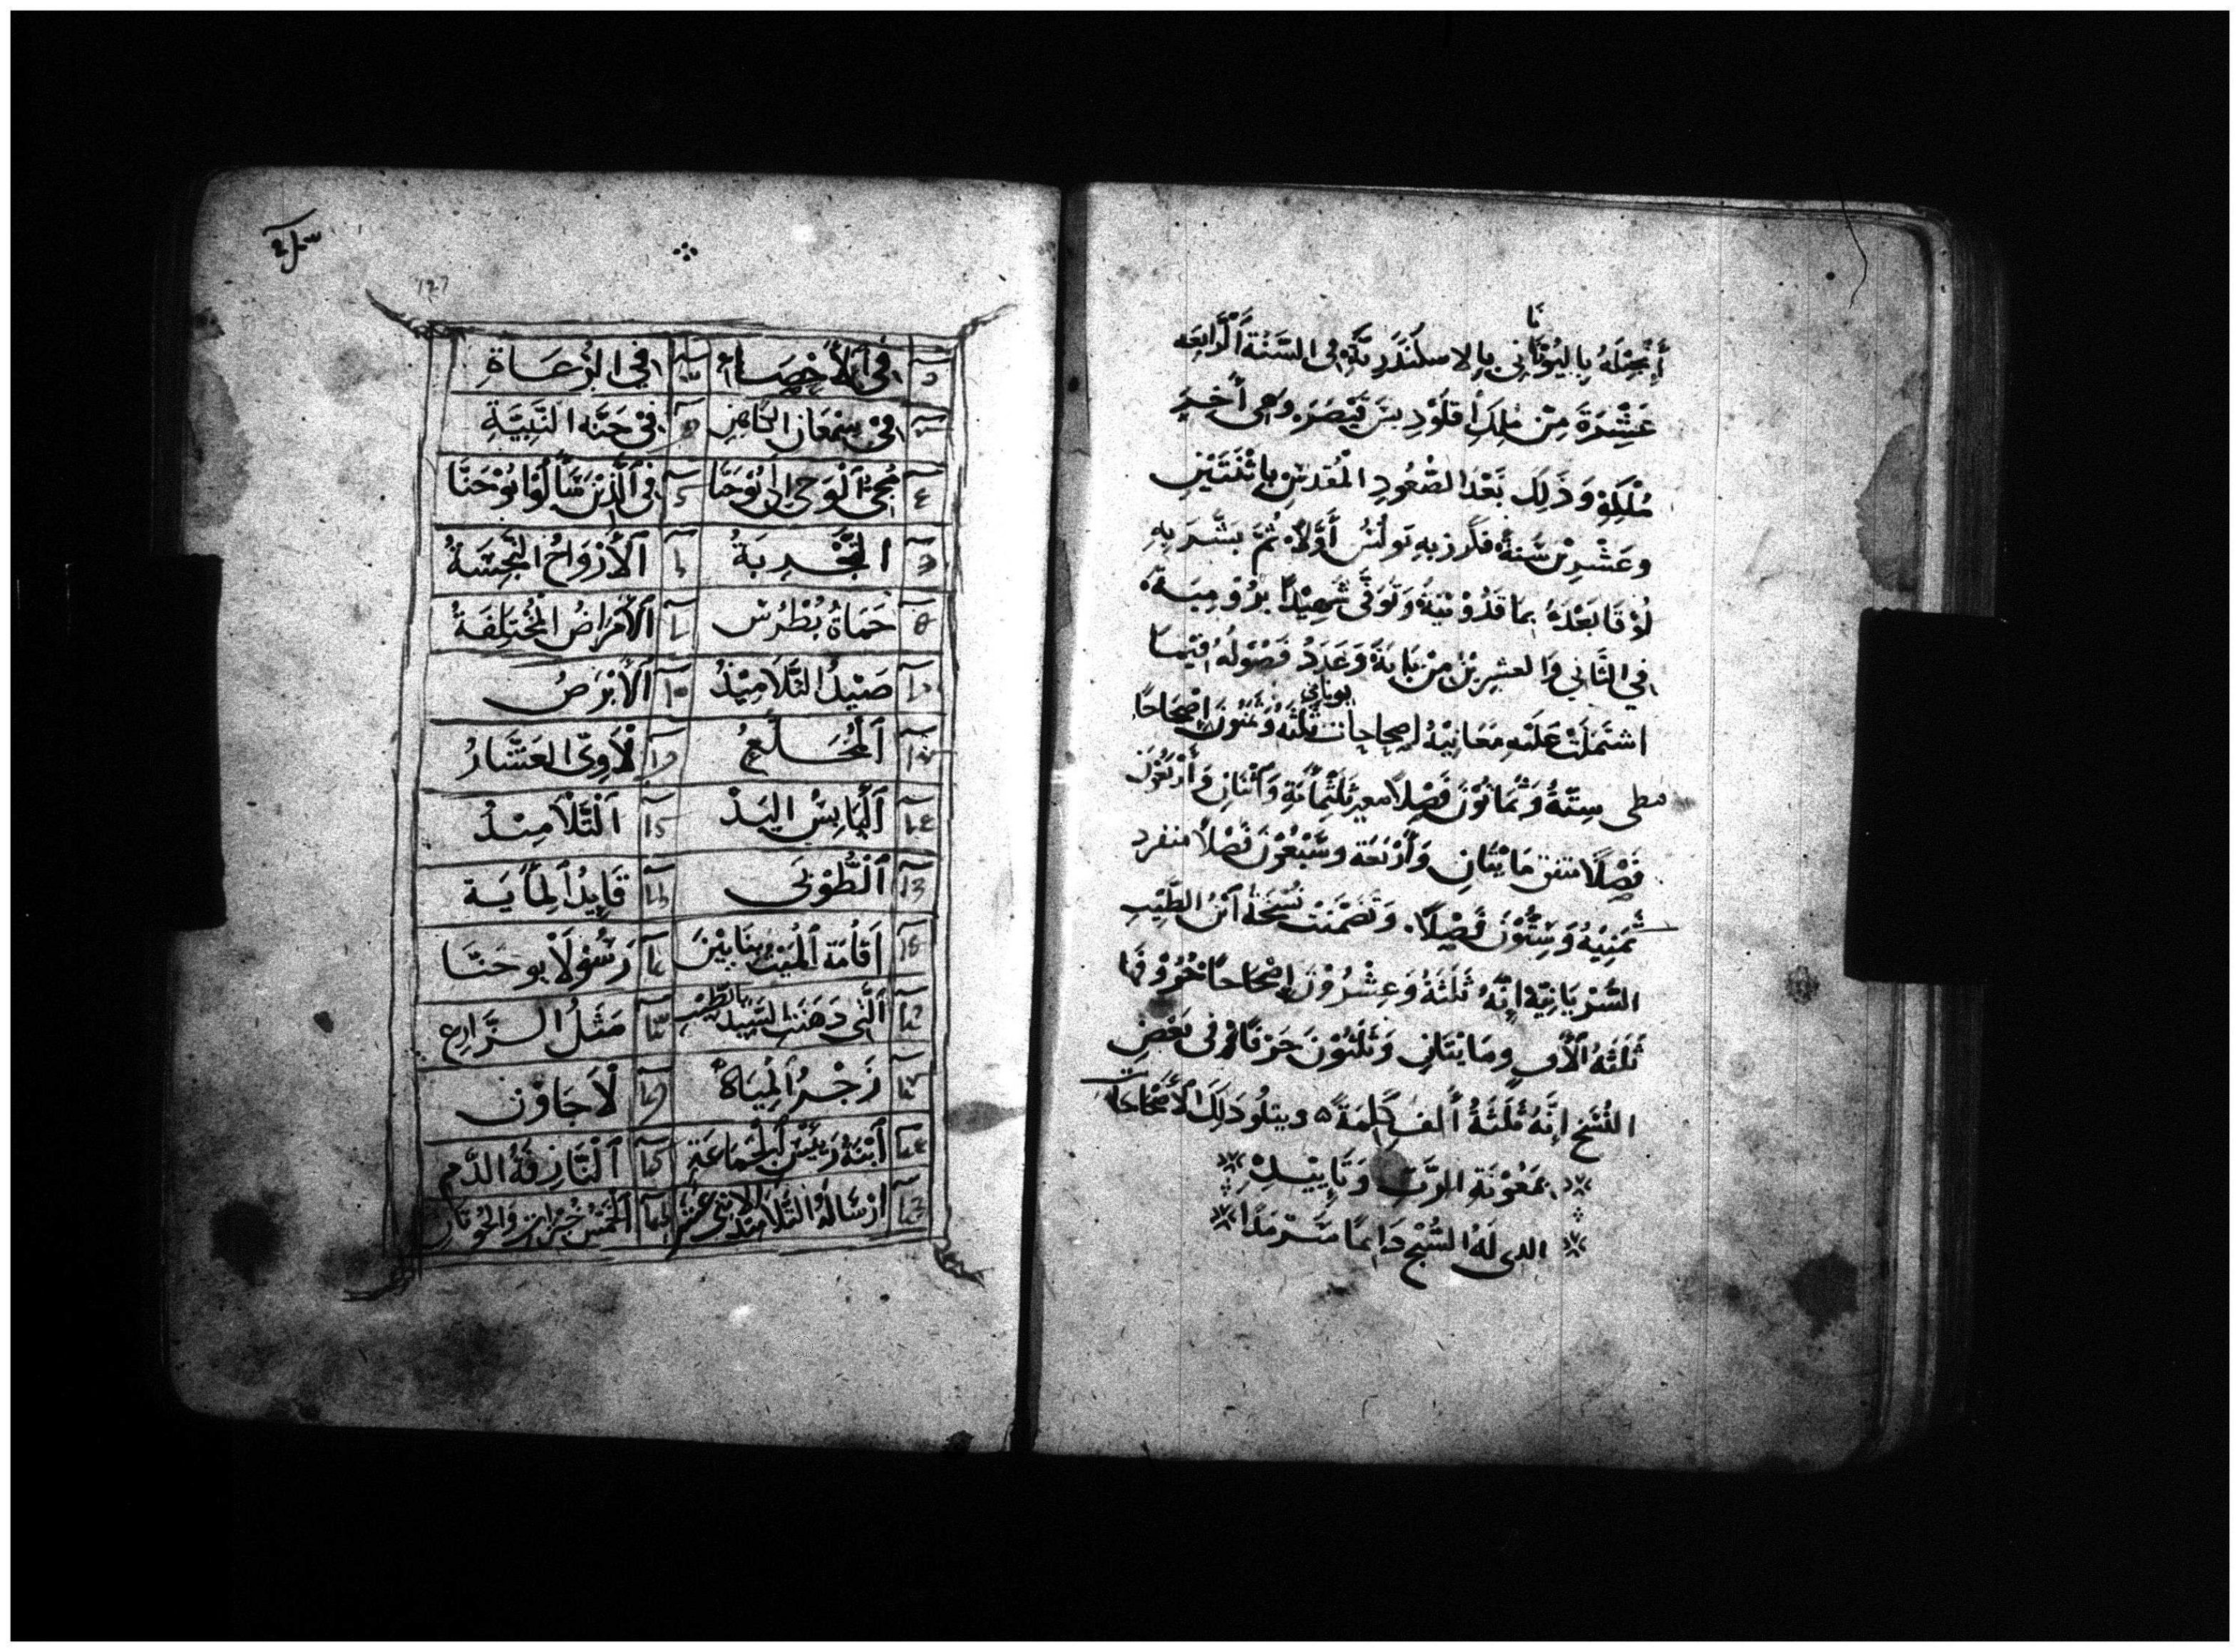 أَنْجِيْلَهُ بِاليُوْنَانِى بِالاسكَنْدَرِيَّةِ فى السَّنَةِ الْرَّابِعَه
عَشْرَةَ مِنْ مُلِكِ اقلَوْدِيسَ قَيْصَرَ وَهى أَخِيرِ
مُلْكِهِ وَذَلِكَ بَعْدَ الصُّعُودِ المُقَدَسْ بِاثْنَتَيْنِ
وعَشْرِيْنَ سَنَةً فكَرز بِهِ بَولُسُ أَوَّلاً ثُمَّ بَشَّرَ بِهِ
لُوْقَا بَعْدَهُ بمَاقَدُوْنيَةَ وَتَوَفَّى شَهِيْدًا بِرُوْمِيَةَ
فى الثَّانِي وَالعشرِيْنَ مِنْ بَابَةَ وَعَدَدُ فُصُولَهُ فيمَا
اشتَمَلَتْ عَلَيْهِ مَعَانِيْهُ اصحاحات يونانى ثَلثَهُ وَثمنُونَ اصْحَاحًا
قبطى سِتَّةُ وَثَمَانُوْنَ فَصْلاً ثَلَثْمِائَةِ وَاثْنَانِ وَأَرْبَعُونَ
فَصْلاً متفق مَايْتَانِ وَأَرْبَعَة وسَبْعُوْنَ فَصْلاً منفرد
ثَمنِيْهُ وَسِتُّوْنَ فَصْلاً وَتَضَمَّنَتْ نُسْخَةُ ابْنُ الطَّيِّبِ
السَّرْيَانِيَّة انَّهُ ثَلَثَةُ وَعِشْرُوْنَ اصْحَاحًا حُرُوْفهَا
ثَلَثَةُ الاف ومَايتَانِ وَثَلَثُوْنَ حَرْفًا وَفى بَعْضِ
النُّسَخِ انَّهُ ثَلَثَةُ أَلف كَلِمَةً ويتلُو ذَلِكَ الأَصْحَاحَات
بمَعُوْنَةِ الرَّبِّ وَتَايِيْدِهِ
الدى لَهُ السُّبْحُ دَايمًا سَرْمَدًا
127
فى الأَحْصَاء فى الرُّعَاةِ
فى سِمْعَان الكَاهِنِ فى حَنَّه النَّبِيَّةِ
مَجِىُّ الْوَحِى الَى يُوحَنَّا فى الَّذِيْنَ سَأَلُوا يُوْحَنَّا
التَّجْرِبَةُ الْأَرْوَاحُ النَّجِسَةُ
حَمَاةُ بُطْرُسْ الأَمْرَاضُ المُخْتَلِفَةُ
صَيْدُ التَّلاَمِيْذُ الأَبْرَصُ
المُخَلَّعُ لاَوِىُّ العَشَّارُ
اليَابِسُ اليَدْ التَّلاَمِيْدُ
الطُّوْبَى قَايدُ المَايَة
اَقَامَة المَيْتُ بنَايِيْنَ رَسُوْلاَ يُوحَنَّا
الَّتى دَهَنَت السَّيِد بالطِّيْبِ مَثَلُ الزَّارِع
زَجْرُ المِيَاهُ لاَجَاوُن
ابْنَةُ رَيئْس الجَمَاعَةِ النَّازفَةُ الدَّم
ارْسَالهُ التَّلاَمِيذ الاثنى عَشَر الخَمْسُ خُبْزَات وَالحُوْتَان